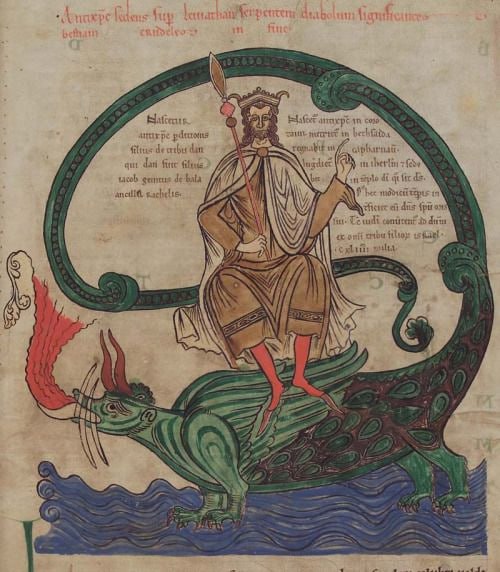 Antixp̄c sedens sup leuiathan serpentem diabolum significantē
bestiam crudelē in fine
Nascetur
antixp̄c pditionis
filius de tribu dan
qui dan fuit filius
iacob genitus de bala
ancilla Rachelis.
Nascet antixp̄c in coro
zaim. nutriet in bethsaida
regnabit in capharnaū.
ingdiet in ihrlm & sede
in tēplo dī q̄ sit d̄s.
hec modicū tēpis in
terficiet eū dn̄s spū oris
sui. Tc iudi conuertent ad dn̄m
ex omi tribu filior israel
.cxliiii. milia.